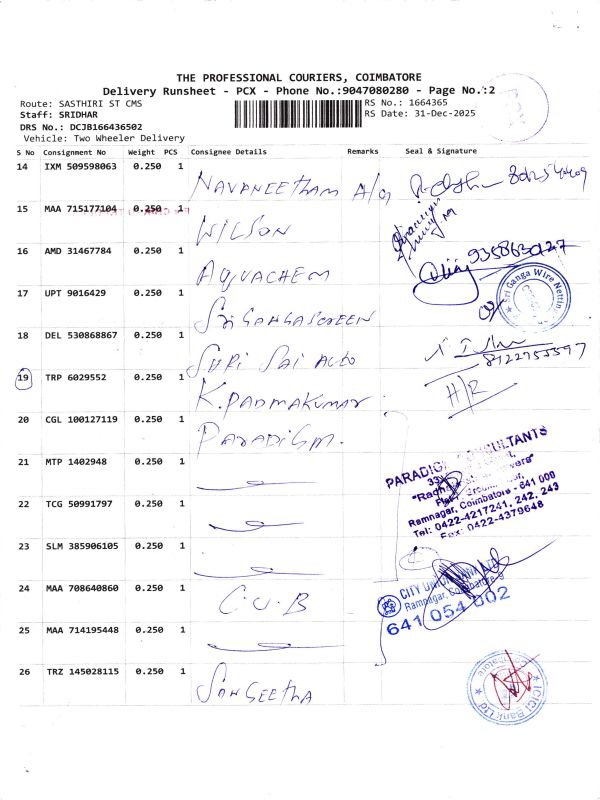 THE PROFESSIONAL COURIERS, COIMBATORE
Delivery Runsheet - PCX - Phone No.:9047080280 - Page No.:2
Route: SASTHIRI ST CMS
RS No.: 1664365
Staff: SRIDHAR
RS Date: 31-Dec-2025
DRS No.: DCJB166436502
Vehicle: Two Wheeler Delivery
S No Consignment No Weight PCS Consignee Details Remarks Seal & Signature
14 IXM 509598063 0.250 1 NAVANEETHAM A/G
15 MAA 715177104 0.250 1 WILSON
16 AMD 31467784 0.250 1 AQUACHEM 9358630127
17 UPT 9016429 0.250 1 Sri GANGA SCREEN
Sri Ganga Wire Netting
18 DEL 530868867 0.250 1 SHRI SAI AUTO
8922755597
19 TRP 6029552 0.250 1 K.PADMAKUMAR H/R
20 CGL 100127119 0.250 1 PARADIGM.
PARADIGM CONSULTANTS
Ramnagar, Coimbatore - 641 009
Tel: 0422-4217241, 242, 243
Fax: 0422-4379648
21 MTP 1402948 0.250 1
22 TCG 50991797 0.250 1
23 SLM 385906105 0.250 1
24 MAA 708640860 0.250 1 C.U.B
CITY UNION BANK LTD
Ramnagar, Coimbatore-9
641 054 002
25 MAA 714195448 0.250 1
26 TRZ 145028115 0.250 1 SANGEETHA
ICICI Bank Ltd
Coimbatore